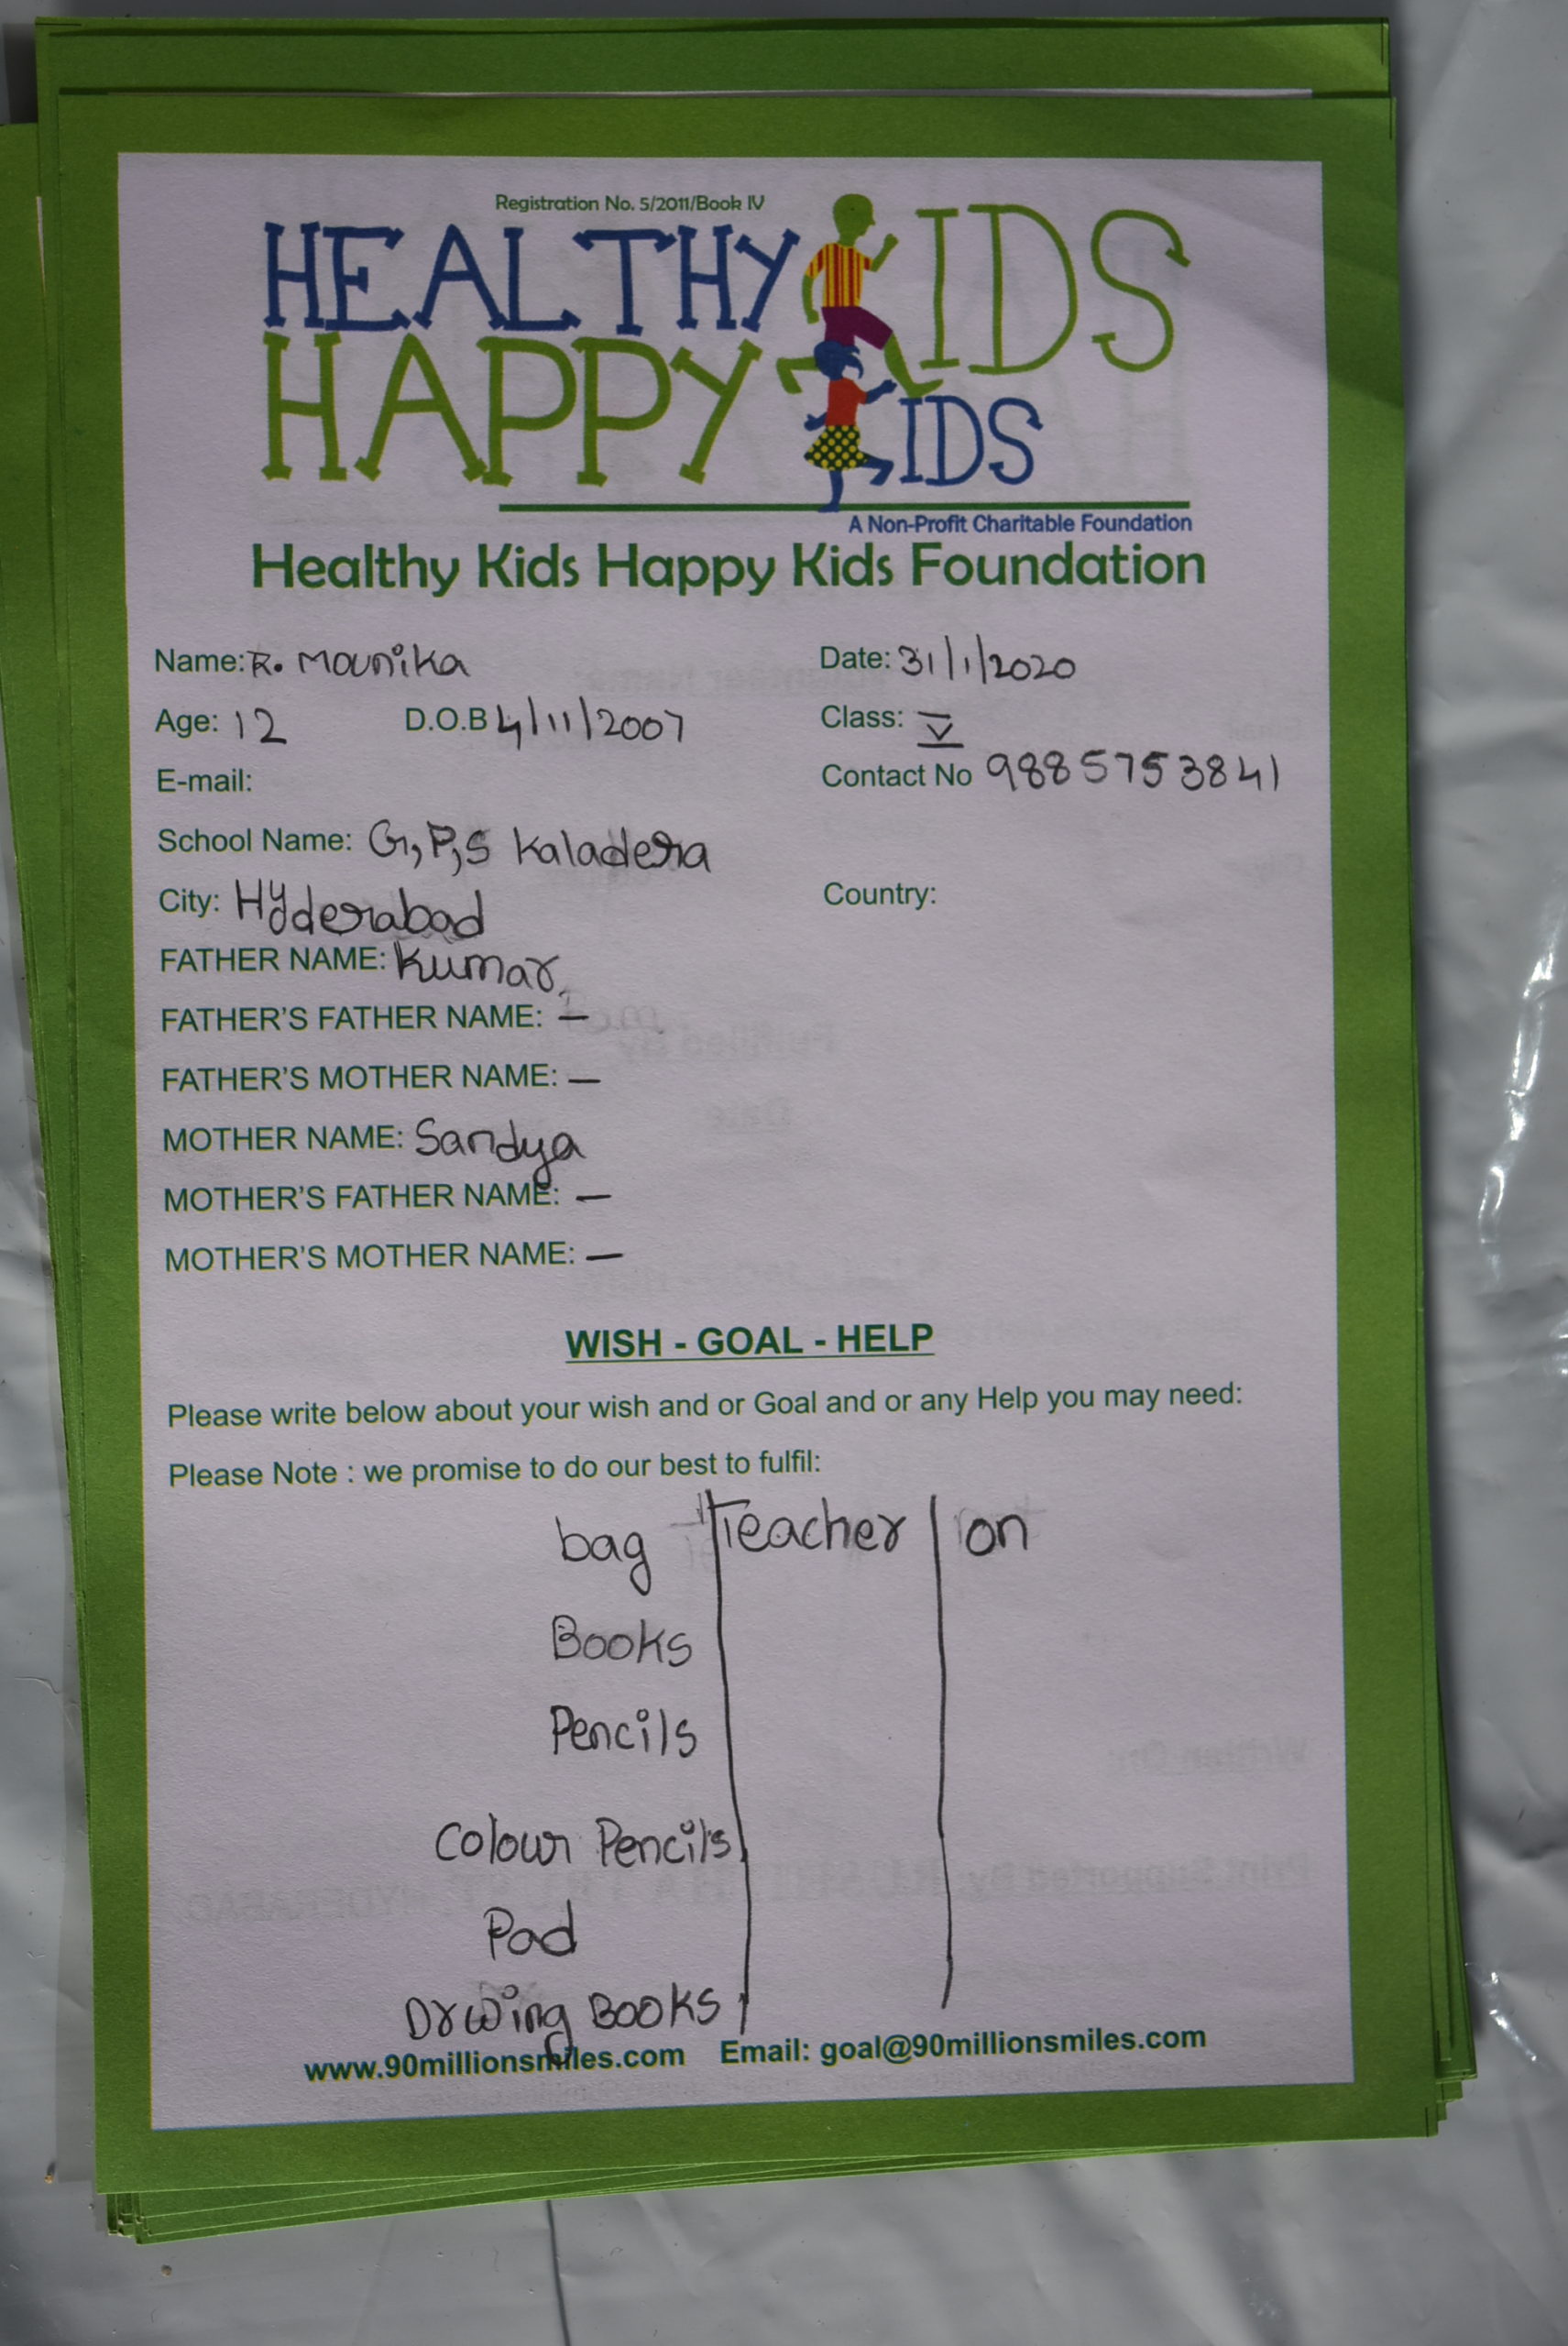 Registration No. 5/2011/Book IV
HEALTHY KIDS
HAPPY KIDS
A Non-Profit Charitable Foundation
Healthy Kids Happy Kids Foundation
Name: R. Mounika Date: 31/1/2020
Age: 12 D.O.B 4/11/2007 Class: V
E-mail: Contact No 9885753841
School Name: G,P,S Kaladera
City: Hyderabad Country:
FATHER NAME: Kumar,
FATHER'S FATHER NAME: —
FATHER'S MOTHER NAME: —
MOTHER NAME: Sandya
MOTHER'S FATHER NAME: —
MOTHER'S MOTHER NAME: —
WISH - GOAL - HELP
Please write below about your wish and or Goal and or any Help you may need:
Please Note : we promise to do our best to fulfil:
bag Teacher on
Books
Pencils
Colour Pencils
Pad
Drwing Books
www.90millionsmiles.com Email: goal@90millionsmiles.com